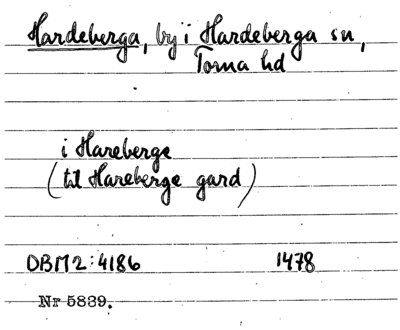 Hardeberga, by i Hardeberga sn,
Torna hd
i Hareberge
(til Hareberge gard)
DBM2:4186 1478
Nr 5839.